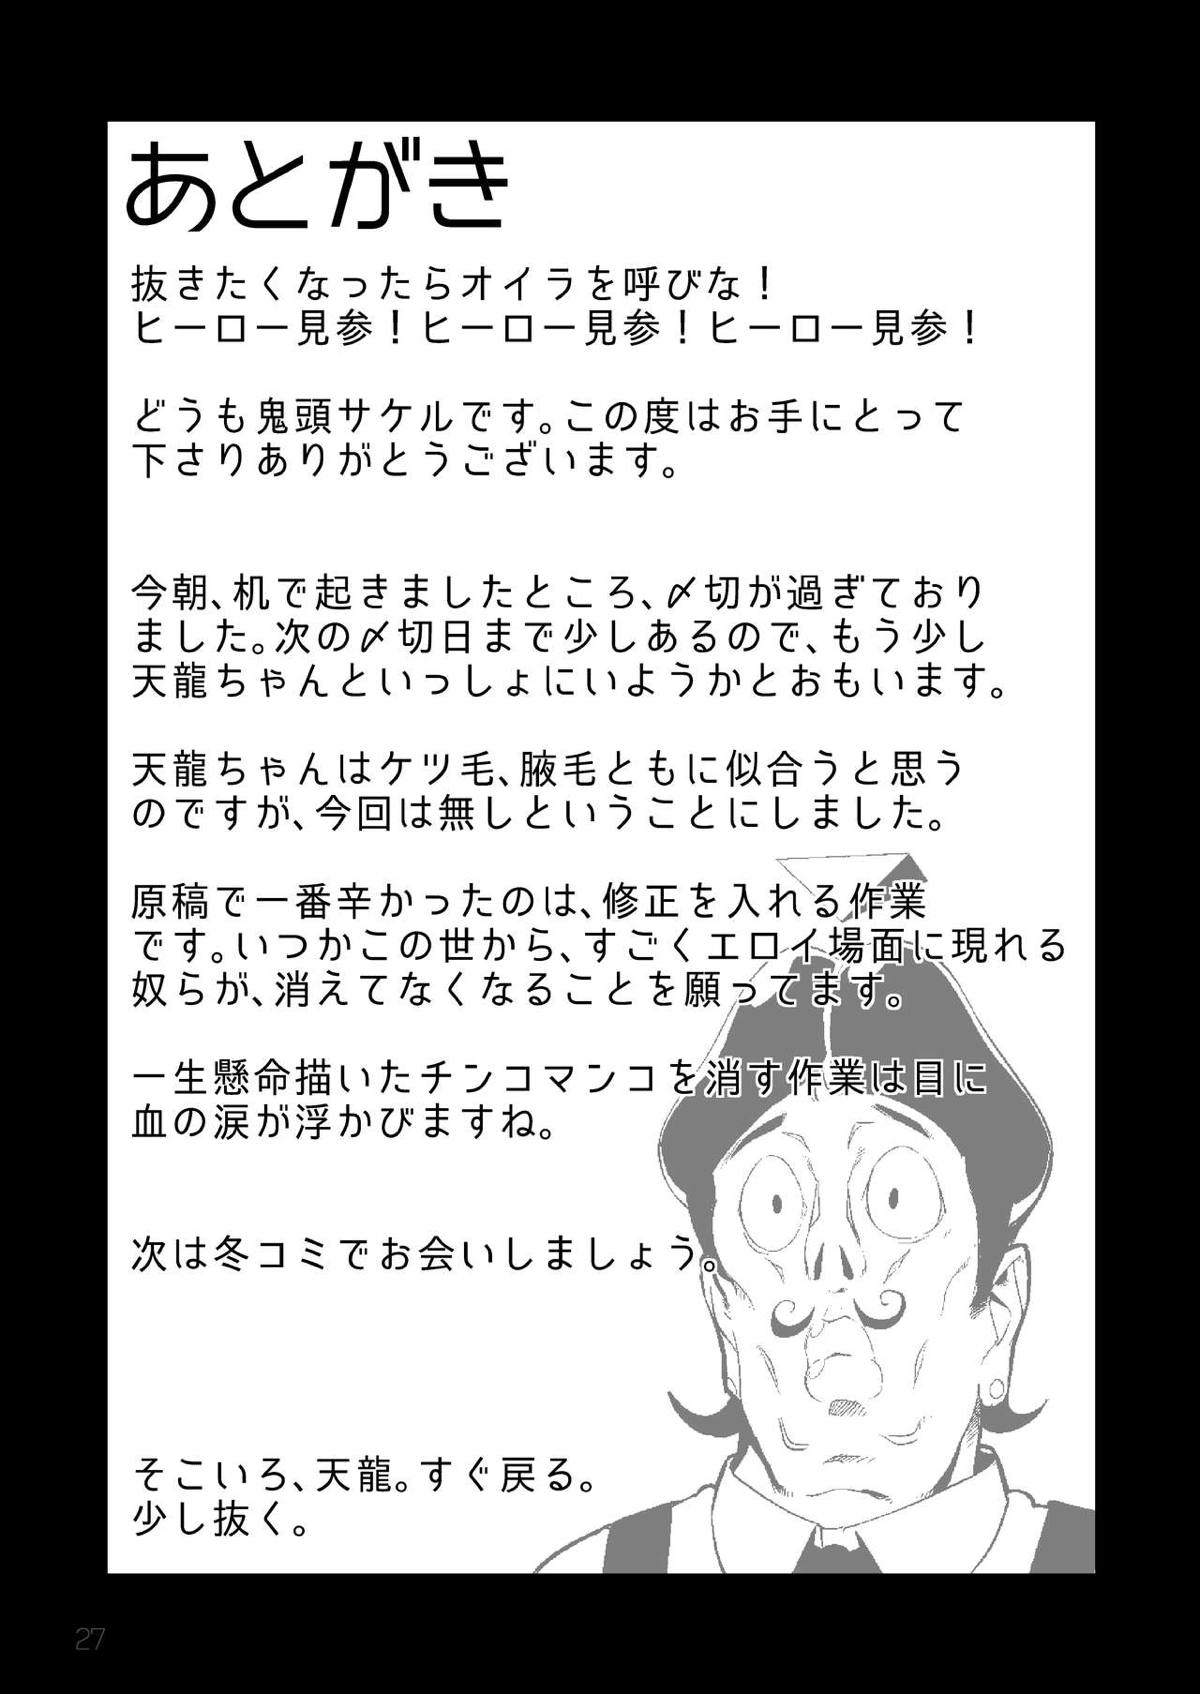 あとがき
抜きたくなったらオイラを呼びな！
ヒーロー見参！ヒーロー見参！ヒーロー見参！
どうも鬼頭サケルです。この度はお手にとって
下さりありがとうございます。
今朝、机で起きましたところ、〆切が過ぎており
ました。次の〆切日まで少しあるので、もう少し
天龍ちゃんといっしょにいようかとおもいます。
天龍ちゃんはケツ毛、腋毛ともに似合うと思う
のですが、今回は無しということにしました。
原稿で一番辛かったのは、修正を入れる作業
です。いつかこの世から、すごくエロイ場面に現れる
奴らが、消えてなくなることを願ってます。
一生懸命描いたチンコマンコを消す作業は目に
血の涙が浮かびますね。
次は冬コミでお会いしましょう。
そこいろ、天龍。すぐ戻る。
少し抜く。
27